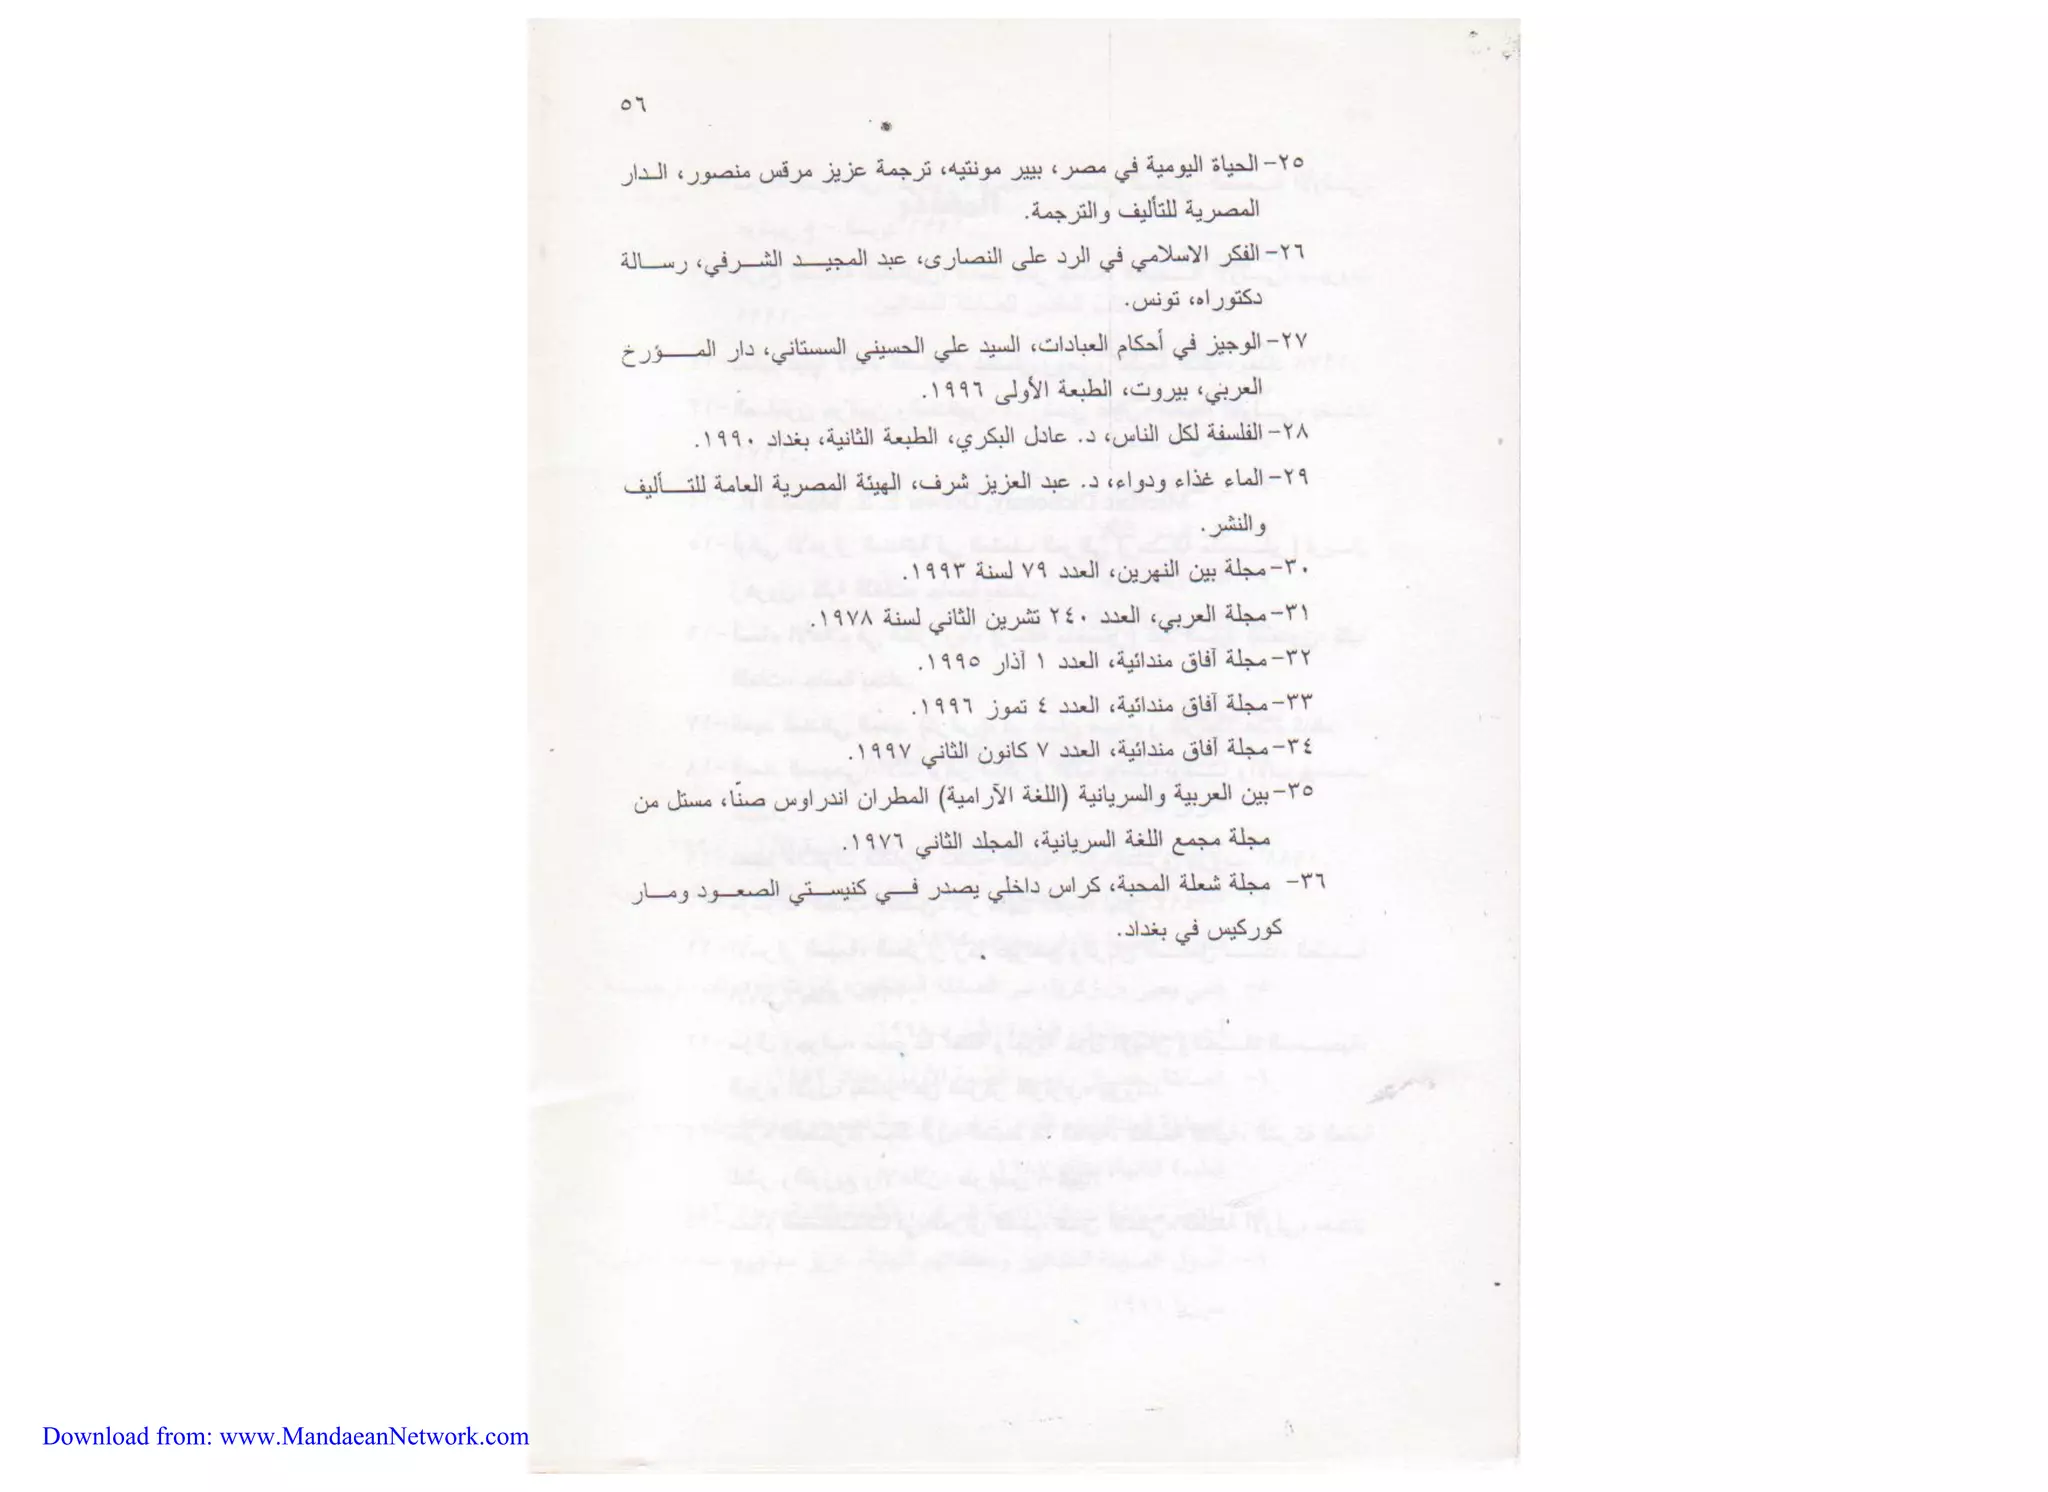 ٥٦
٢٥- الحياة اليومية في مصر، بيير مونتيه، ترجمة عزيز مرقس منصور، الدار
المصرية للتأليف والترجمة.
٢٦- الفكر الاسلامي في الرد على النصارى، عبد المجيد الشرفي، رسالة
دكتوراه، تونس.
٢٧- الوجيز في أحكام العبادات، السيد علي الحسيني السستاني، دار المؤرخ
العربي، بيروت، الطبعة الأولى ١٩٩٦.
٢٨- الفلسفة لكل الناس، د. عادل البكري، الطبعة الثانية، بغداد ١٩٩٠.
٢٩- الماء غذاء ودواء، د. عبد العزيز شرف، الهيئة المصرية العامة للتأليف
والنشر.
٣٠- مجلة بين النهرين، العدد ٧٩ لسنة ١٩٩٣.
٣١- مجلة العربي، العدد ٢٤٠ تشرين الثاني لسنة ١٩٧٨.
٣٢- مجلة آفاق مندائية، العدد ١ آذار ١٩٩٥.
٣٣- مجلة آفاق مندائية، العدد ٤ تموز ١٩٩٦.
٣٤- مجلة آفاق مندائية، العدد ٧ كانون الثاني ١٩٩٧.
٣٥- بين العربية والسريانية (اللغة الآرامية) المطران اندراوس صنّا، مستل من
مجلة مجمع اللغة السريانية، المجلد الثاني ١٩٧٦.
٣٦- مجلة شعلة المحبة، كراس داخلي يصدر في كنيستي الصعود ومار
كوركيس في بغداد.
Download from: www.MandaeanNetwork.com